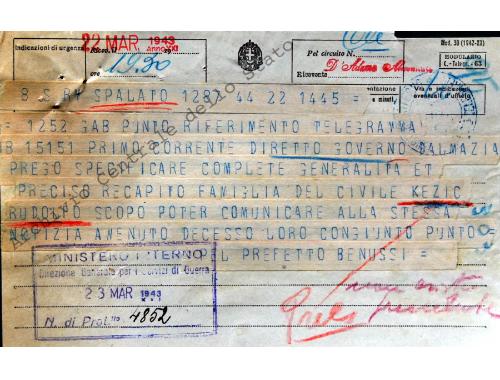 22 MAR. 1943
ANNO XXI
Mod. 30 (1942-XX)
Indicazioni di urgenza
Ricev. il
Pel circuito N.
MODULARIO
ore 19.30
Ricevente D'Adamo
8 S R4 SPALATO 1287 44 22 1445 =
= 1252 GAB PUNTO RIFERIMENTO TELEGRAMMA
15151 PRIMO CORRENTE DIRETTO GOVERNO DALMAZIA
PREGO SPECIFICARE COMPLETE GENERALITA ET
PRECISO RECAPITO FAMIGLIA DEL CIVILE KEZIC
RUDOLFO SCOPO POTER COMUNICARE ALLA STESSA
NOTIZIA AVENUTO DECESSO LORO CONGIUNTO PUNTO =
EL PREFETTO BENUSSI =
MINISTERO INTERNO
Direzione Generale per i Servizi di Guerra
23 MAR 1943
N. di Prot. 4852
non
Archivio centrale dello stato